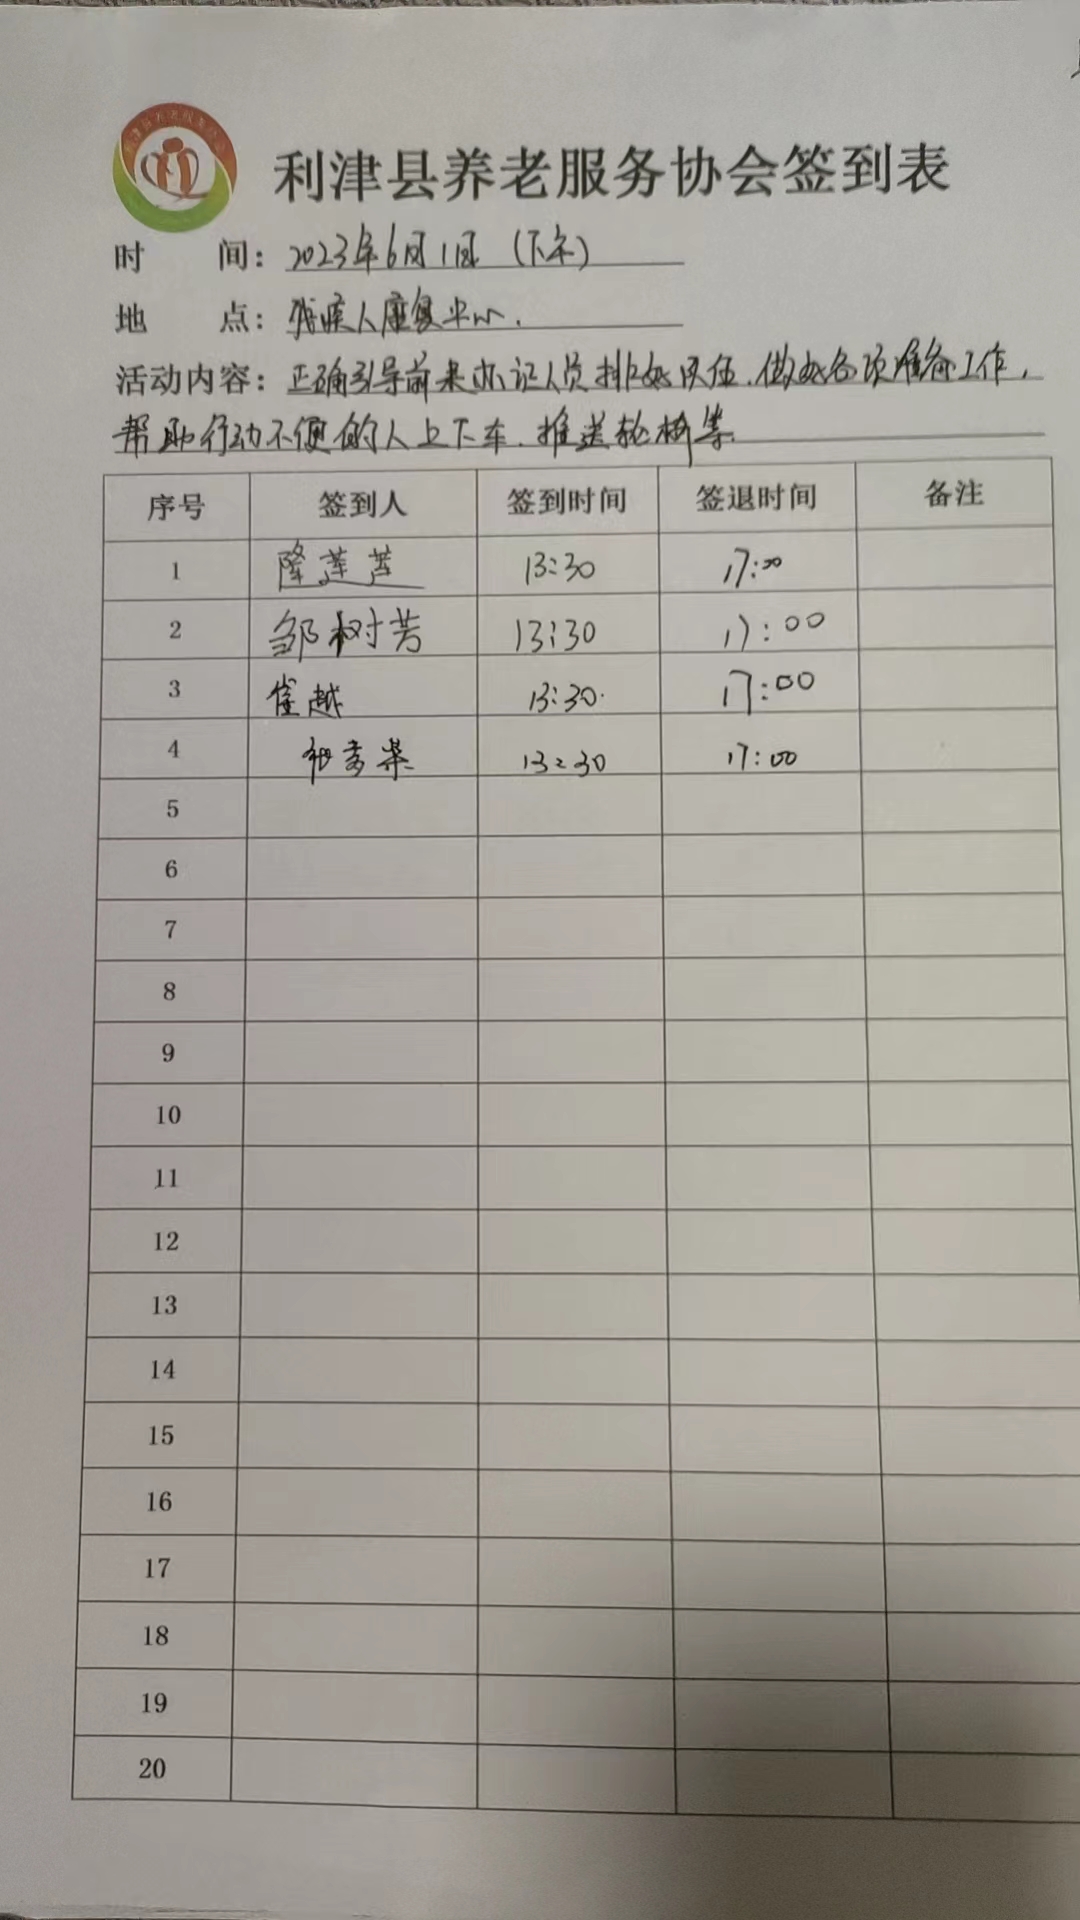 利津县养老服务协会签到表
时 间：2023年6月1日（下午）
地 点：残疾人康复中心.
活动内容：正确引导前来办证人员排好队伍.做好各项准备工作，
帮助行动不便的人上下车.推送轮椅等.
序号 签到人 签到时间 签退时间 备注
1 隆莲莲 13:30 17:00
2 邹树芳 13:30 17:00
3 崔越 13:30 17:00
4 13:30 17:00
5
6
7
8
9
10
11
12
13
14
15
16
17
18
19
20